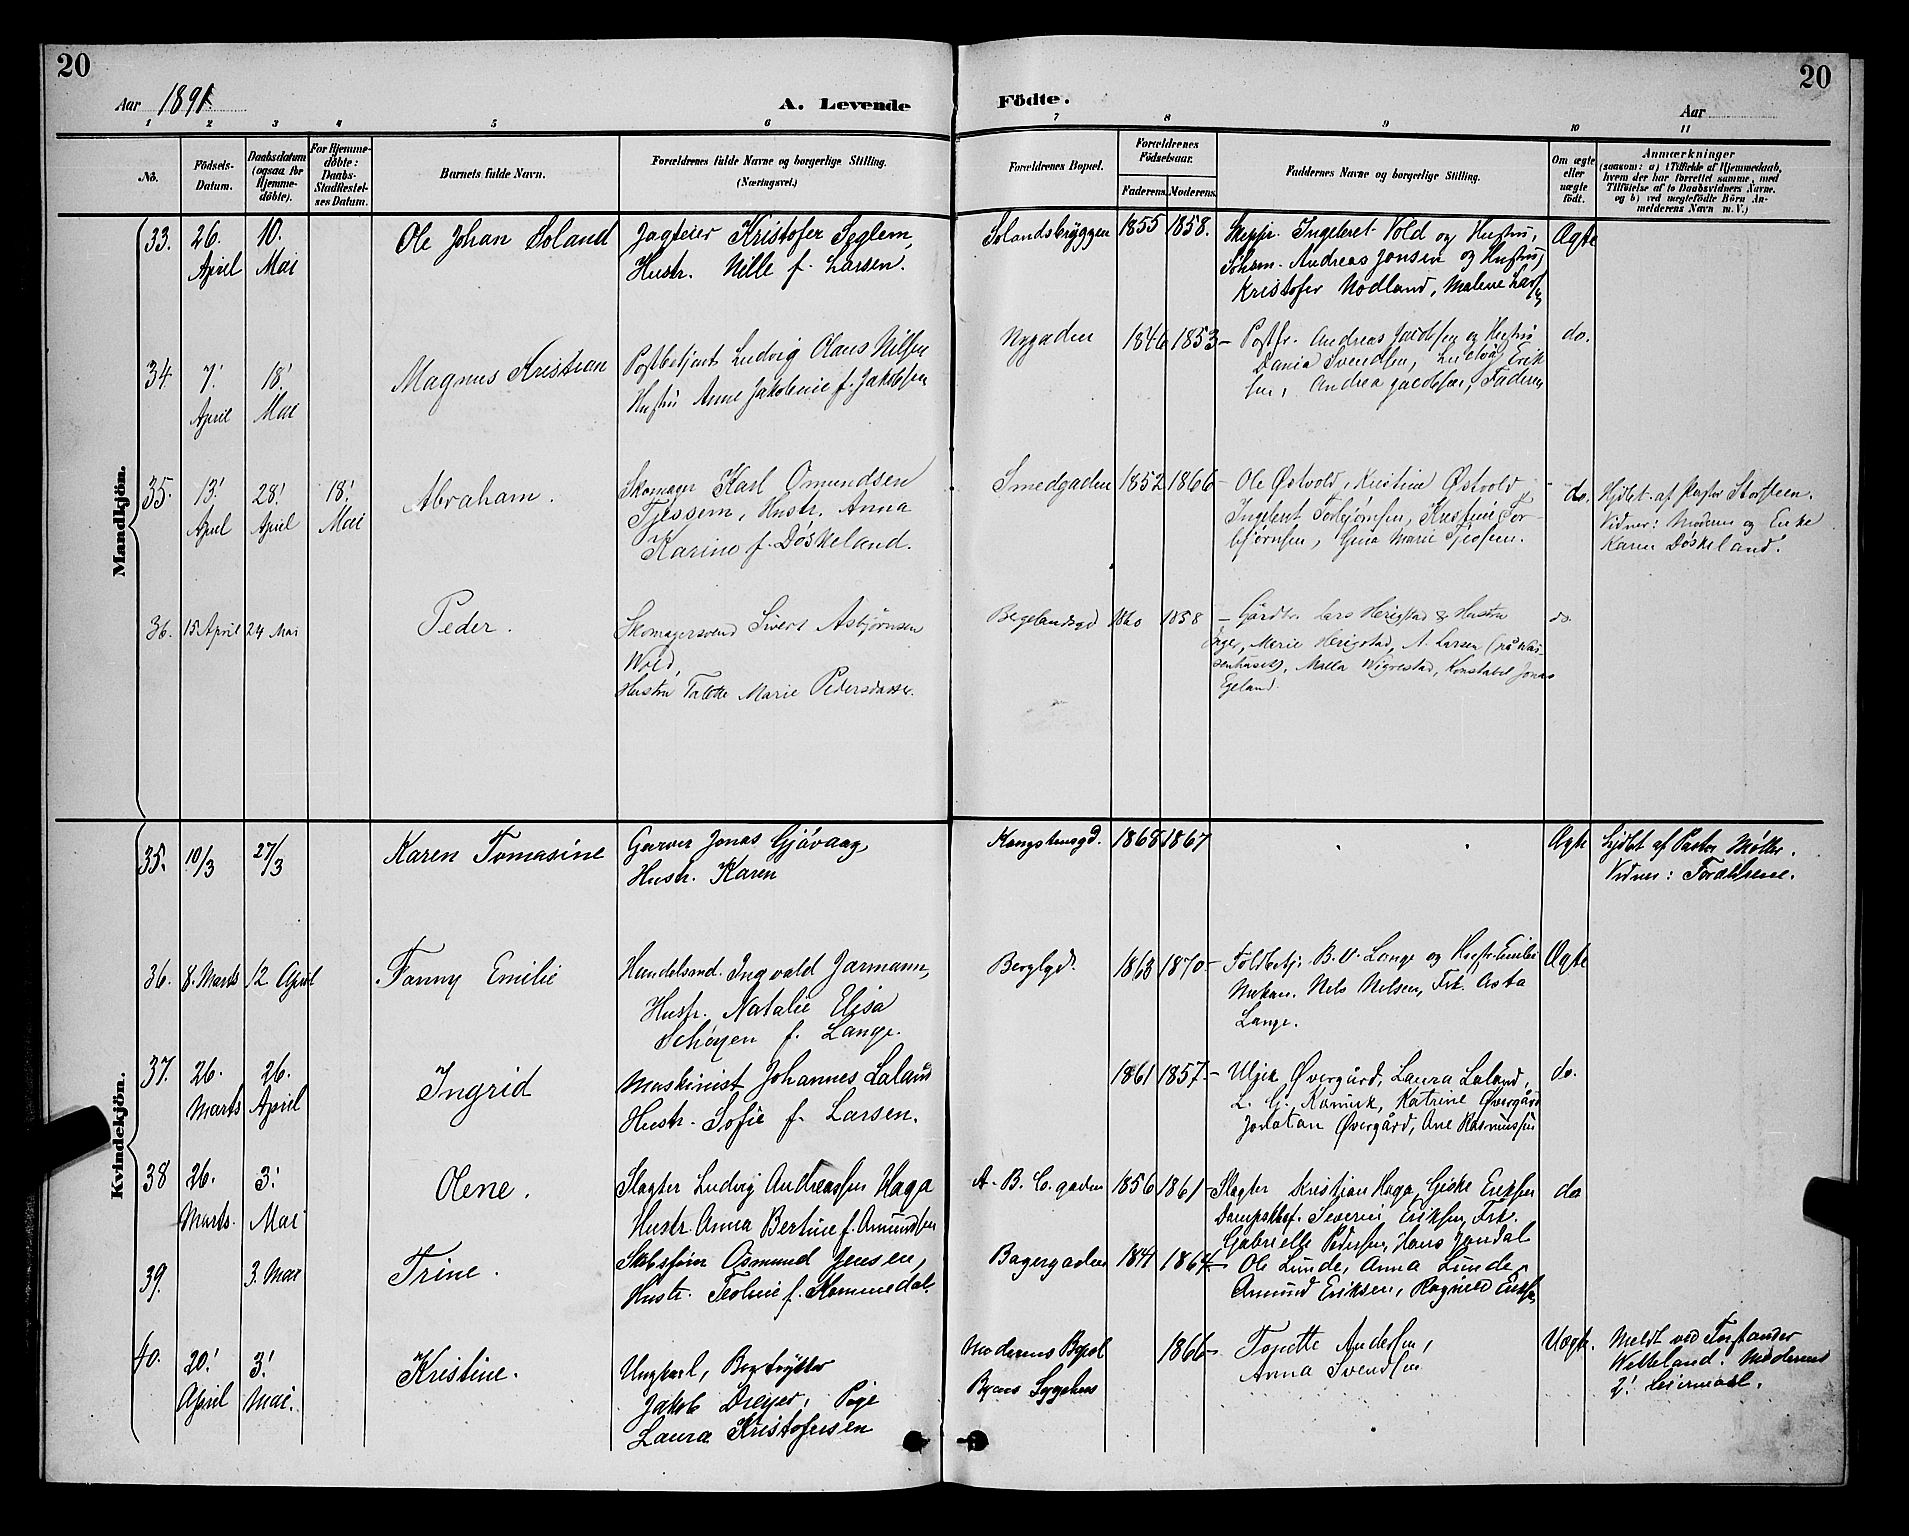 20
20
Aar 1891.
A. Levende
Födte.
Aar
1 2 3 4 5 6 7 8 9 10 11
No.
Födsels-Datum.
Daabsdatum (ogsaa for Hjemme-döbte).
For Hjemme-döbte: Daabs-Stadfæstel-ses Datum.
Barnets fulde Navn.
Forældrenes fulde Navne og borgerlige Stilling.
(Næringsvei.)
Forældrenes Bopæl.
Forældrenes Födselsaar.
Faderens. Moderens.
Faddernes Navne og borgerlige Stilling.
Om ægte eller uægte födt.
Anmærkninger
(saasom: a) i Tilfælde af Hjemmedaab,
hvem der har forrettet samme, med
Tilföielse af to Daabsvidners Navne.
og b) ved uægtefödte Börn An-
melderens Navn m. V.)
Mandkjön.
33. 26. April 10. Mai Ole Johan Soland
Jagteier Kristofer Seglem,
Hustr. Nille f. Larsen.
Solandsbryggen 1855 1858.
Skippr. Ingebret Vold og Hustru,
Andreas Jonsen og Hustru,
Kristofer Nodland, Malene Larsen
Ægte
34. 7! April 18! Mai Magnus Kristian
Postbetjent Ludvig Olaus Nilsen
Hustru Anne Jakobine f. Jakobsen
Nygaden 1846 1853 –
Andreas Jacobsen og Hustru
Dania Svendsen, Erik
sen, Andrea Jacobsen, Faderen
do.
35. 13! April 28! April 18! Mai Abraham.
Skomager Karl Omundsen
Tjessem, Hustr. Anna
Karine f. Døskeland.
Smedgaden 1852 1866 –
Ole Østvold, Kristine Østvold
Ingebret Torbjørnsen, Kristine Tor-
bjørnsen, Gina Marie
do.
Hjdbt. af Pastor Storsteen.
Vidner: Moderen og Enke
Karen Døskeland.
36. 15 April 24 Mai Peder.
Skomagersvend Sivert Asbjørnsen
Wold,
Hustru Talette Marie Pedersdatter.
Begelandsgd 1858
– Gårdbr. Lars Herigstad & Hustru
Inger, Marie Herigstad, A. Larsen (på Wai-
senhuset), Malla Wigrestad, Konstabel Jonas
Egeland.
do
Kvindekjön.
35. 10/3 27/3 Karen Tomasine
Garver Jonas Gjåvaag
Hustr. Karen
Kongstensgd. 1868 1867
Ægte
Hjdbt af Pastor Møller.
Vidner: Forældrene.
36. 8. Marts 12 April Fanny Emilie
Handelsmd. Ingvald Jarmann,
Hustr. Natalie Elisa
Schøyen f. Lange.
Berglgd. 1863 1870 –
Toldbetj. B. V. Lange og Hustr. Emilie
Mekan. Nels Nelsen, Frk. Asta
Lange.
Ægte
37. 26. Marts 26. April Ingrid
Maskinist Johannes Laland
Hustr. Sofie f. Larsen.
1861 1857 –
Øvergård, Laura Laland,
L. G. Katrine Øvergård
Jonatan Øvergård, Ane Rasmussen
do.
38 26. Marts. 3! Mai Olene.
Slagter Ludvig Andreassen Haga
Hustr. Anna Bertine f. Amundsen
A-B. C. gaden 1856 1861 –
Slagter Kristian Haga, Eriksen
Severin Eriksen, Frk.
Gabrielle Pedersen, Hans Jondal
do
39. 3. Mai Trine.
Osmund Jensen,
Hustr. Teoline f. Kommedal.
Bagergaden 1841 1864 –
Ole Lunde, Anna Lunde,
Amund Eriksen, Ragnild Eriksen
40. 20! April 3! Mai. Kristine.
Ungkarl, Bogtrykker
Jakob Dreyer, Pige
Laura Kristofersen
Moderens Bopæl
Byens Sygehus
1866 –
Tonette Andersen,
Anna Svendsen
Uægte.
Meldt ved Forstander
Welleland. Moderens
2! Leiermaal.